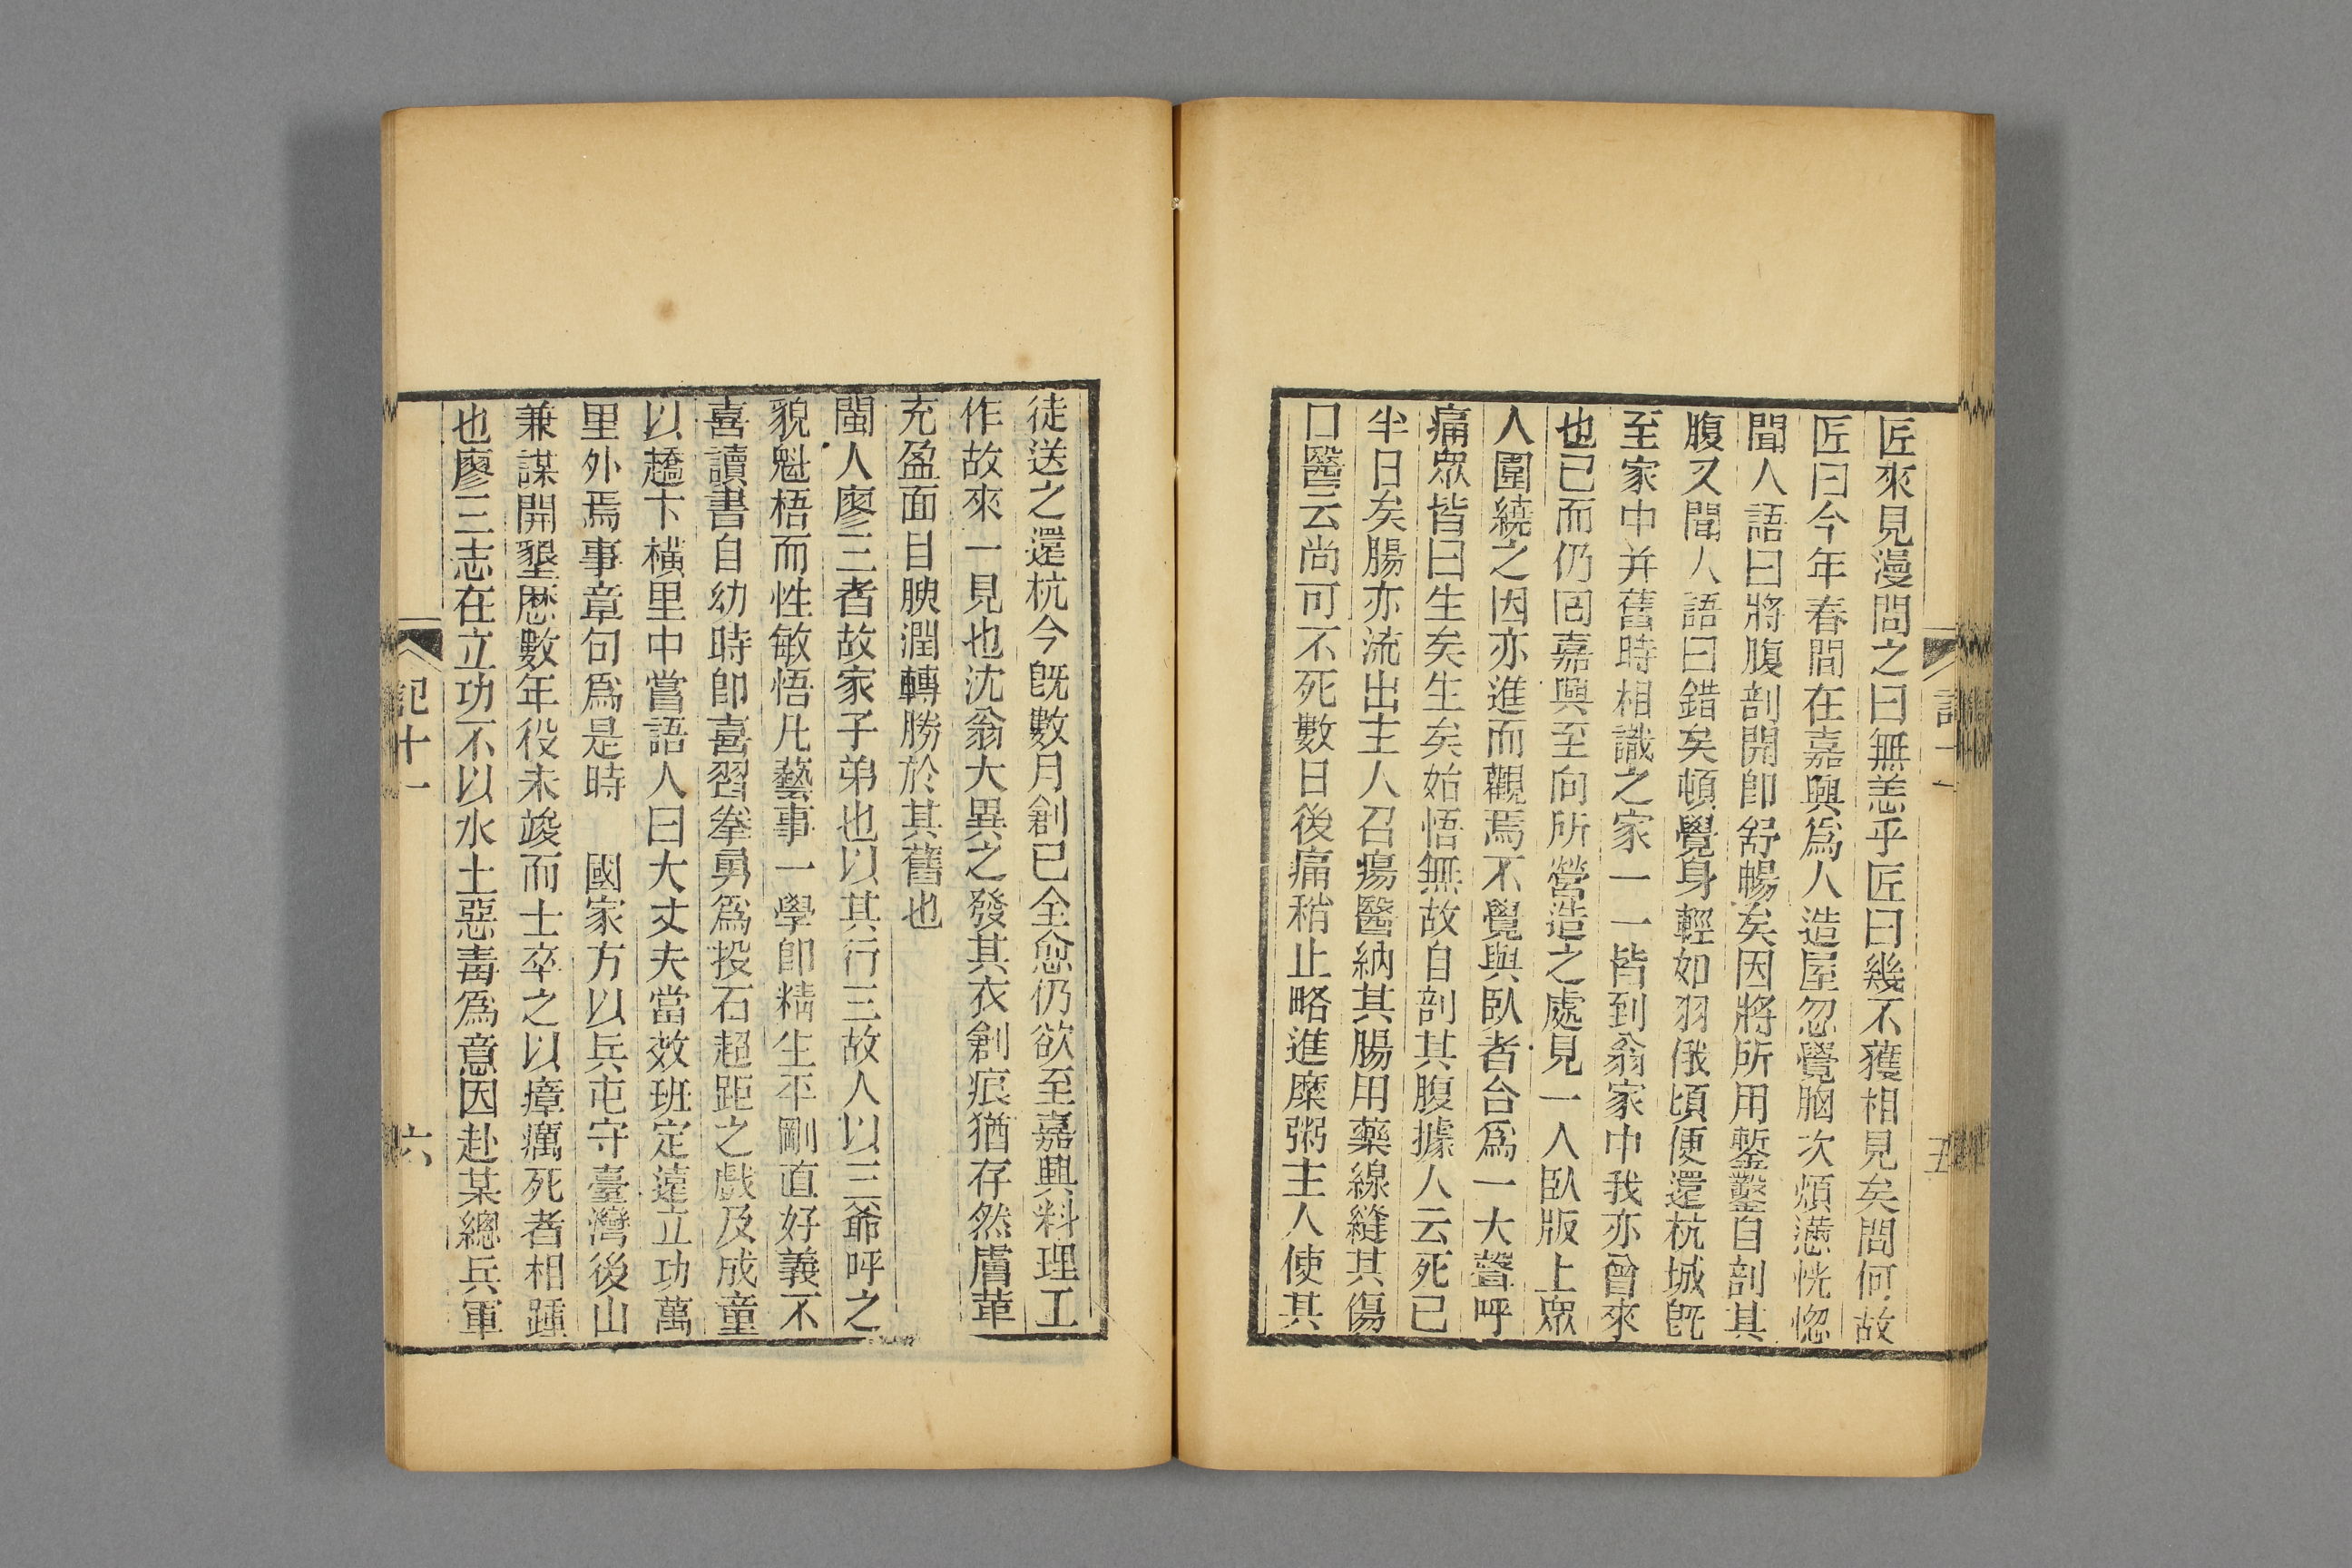 匠來見漫問之曰無恙乎匠曰幾不獲相見矣問何故
匠曰今年春間在嘉興爲人造屋忽覺胸次煩懣恍惚
聞人語曰將腹剖開卽舒暢矣因將所用鏨鑿自剖其
腹又聞人語曰錯矣頓覺身輕如羽俄頃便還杭城旣
至家中并舊時相識之家一一皆到翁家中我亦曾來
也已而仍囘嘉興至向所營造之處見一人臥版上眾
人圍繞之因亦進而觀焉不覺與臥者合爲一大聲呼
痛眾皆曰生矣生矣始悟無故自剖其腹據人云死已
半日矣腸亦流出主人召瘍醫納其腸用藥線縫其傷
口醫云尚可不死數日後痛稍止略進糜粥主人使其
五
徒送之還杭今旣數月創已全愈仍欲至嘉興料理工
作故來一見也沈翁大異之發其衣創痕猶存然膚革
充盈面目腴潤轉勝於其舊也
閩人廖三者故家子弟也以其行三故人以三爺呼之
貌魁梧而性敏悟凡藝事一學卽精生平剛直好義不
喜讀書自幼時卽喜習拳勇爲投石超距之戲及成童
以趫卞橫里中嘗語人曰大丈夫當效班定遠立功萬
里外焉事章句爲是時 國家方以兵屯守臺灣後山
兼謀開墾歴數年役未竣而士卒之以瘴癘死者相踵
也廖三志在立功不以水土惡毒爲意因赴某總兵軍
記十一
六